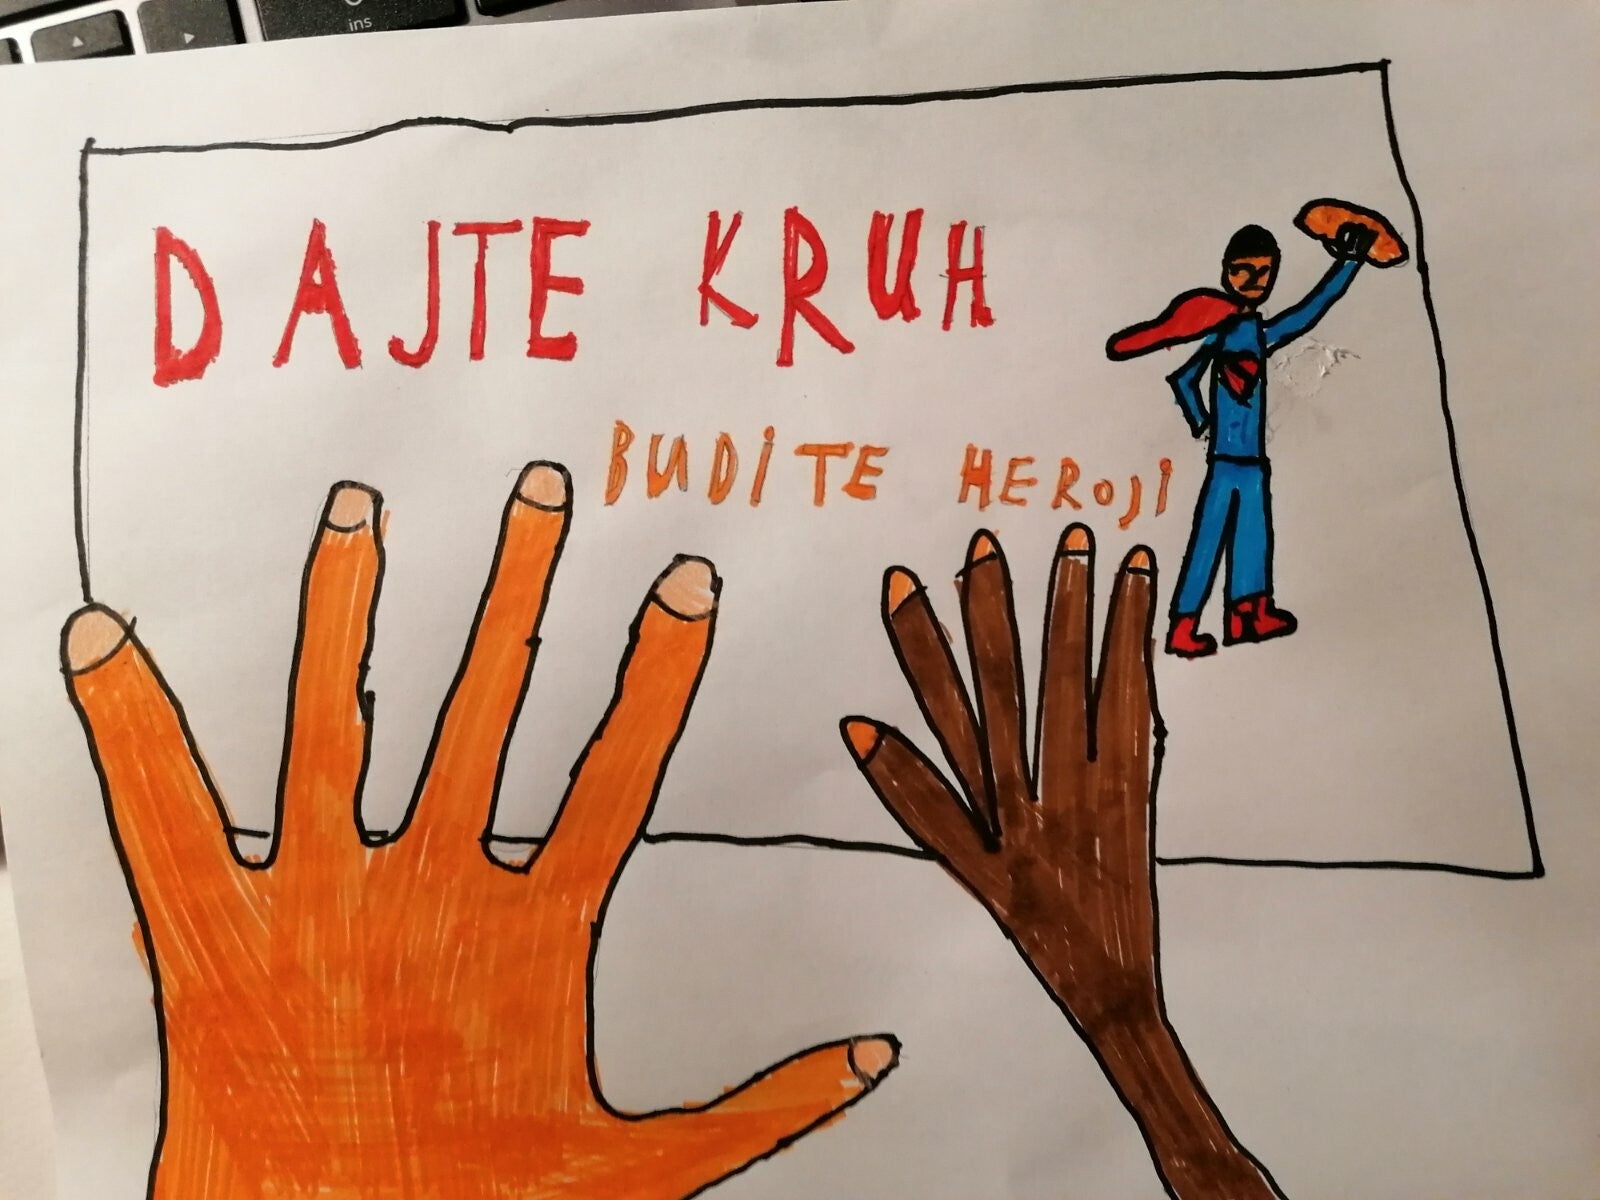 ins
DAJTE KRUH
BUDiTE HEROJi